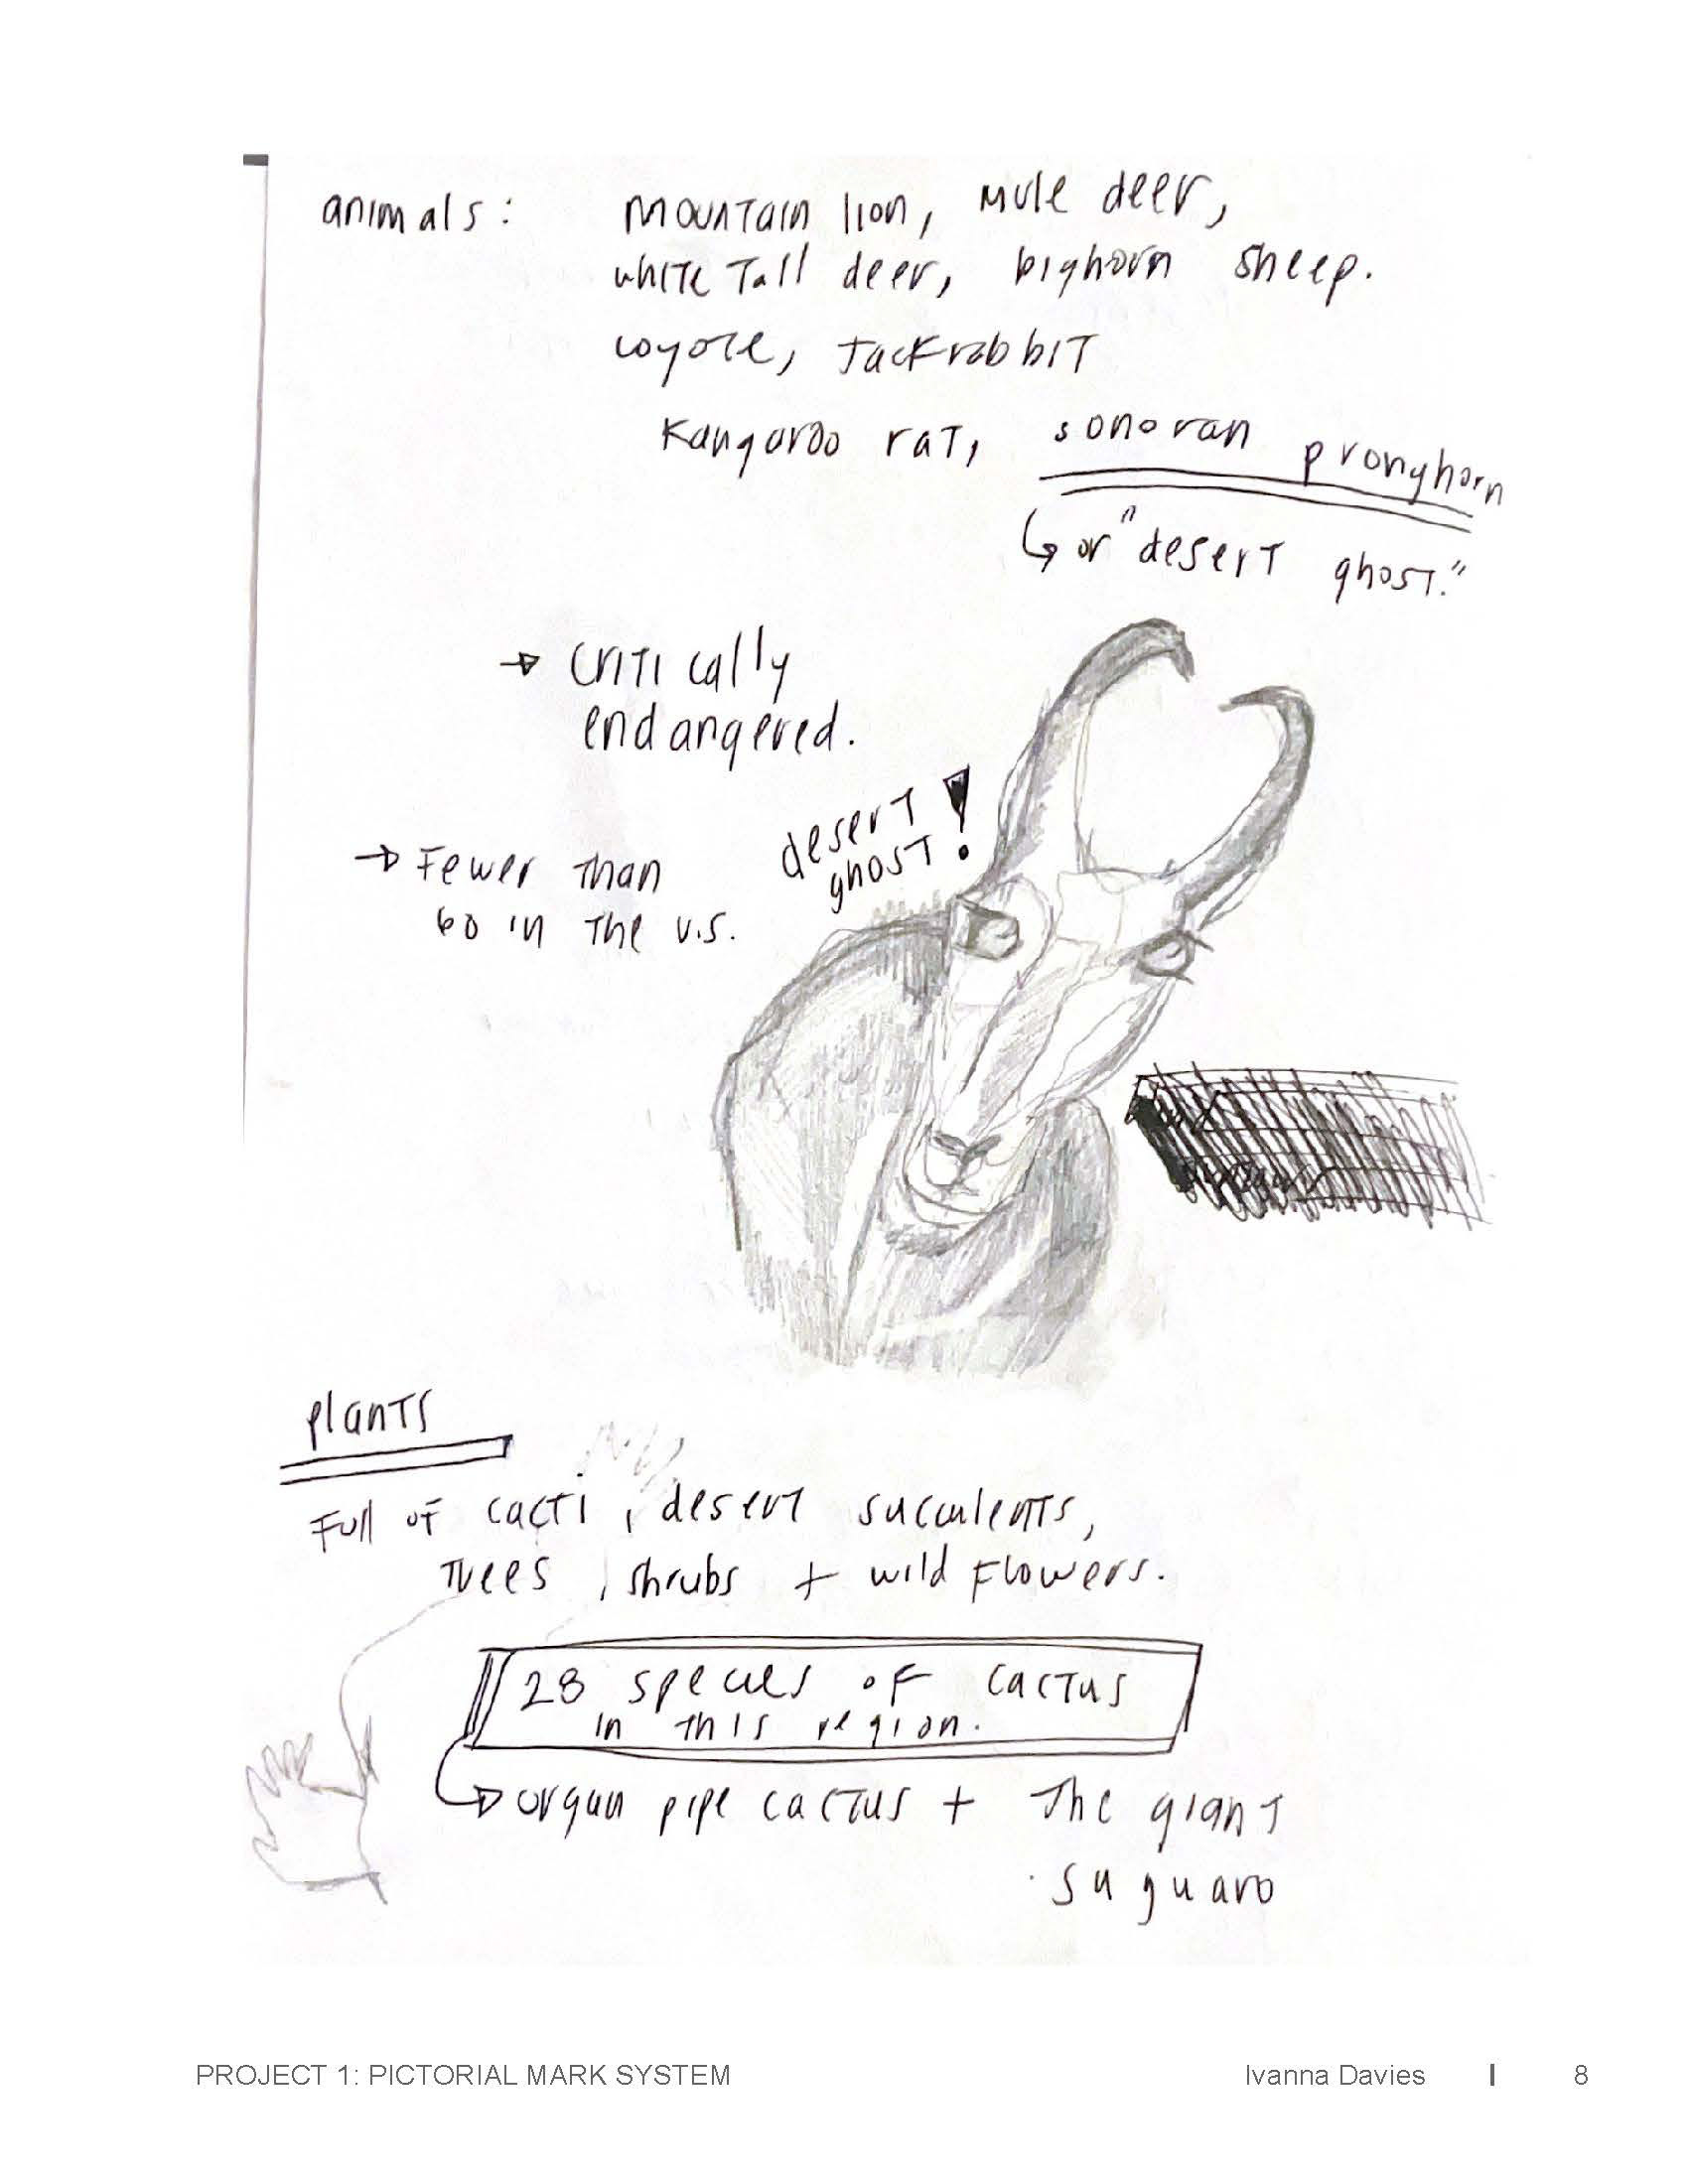 animals: mountain lion, mule deer,
white tail deer, bighorn sheep.
coyote, jackrabbit
kangaroo rat, sonoran pronghorn
or "desert ghost."
critically
endangered.
desert
ghost!
Fewer than
60 in the U.S.
plants
Full of cacti, desert succulents,
trees, shrubs + wild flowers.
28 species of cactus
in this region.
organ pipe cactus + The giant
saguaro
PROJECT 1: PICTORIAL MARK SYSTEM Ivanna Davies | 8